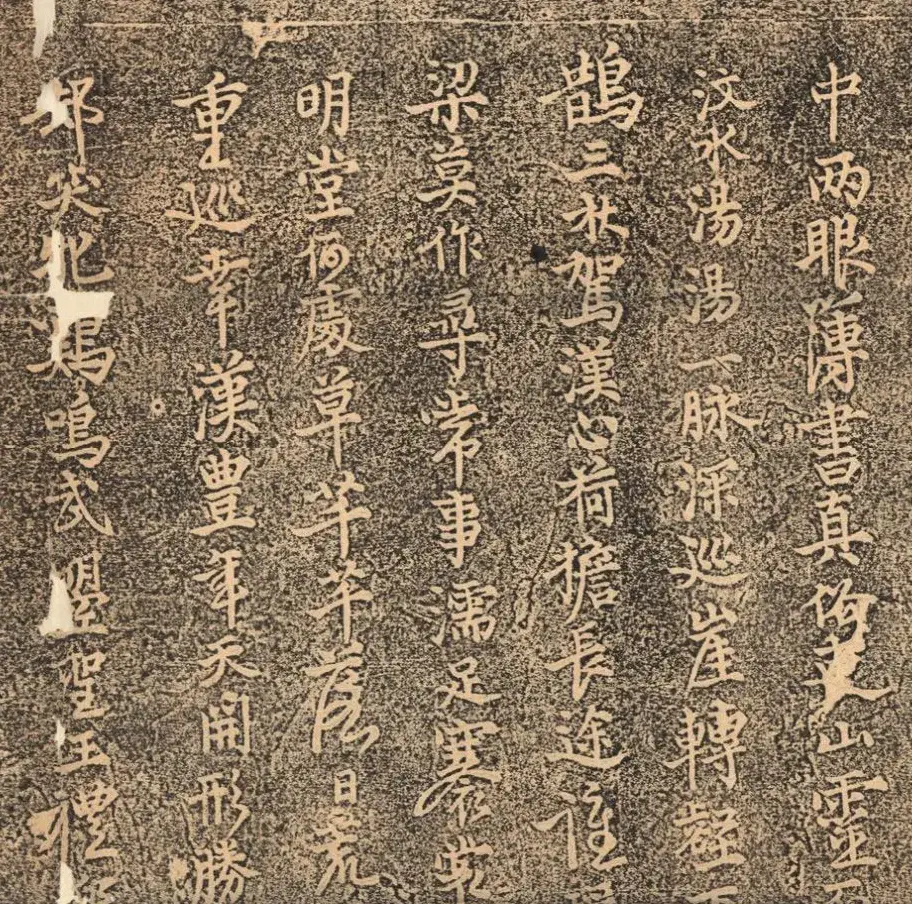 中两眼薄書真何
山靈
汶水湯湯一脉深巡崖轉壑
鵲三林駕漢心荷擔長途
梁莫作尋常事濡足褰裳
明堂何處草芊芊落日荒
重巡幸漢豐年天開形勝
鳴武盟聖王禮